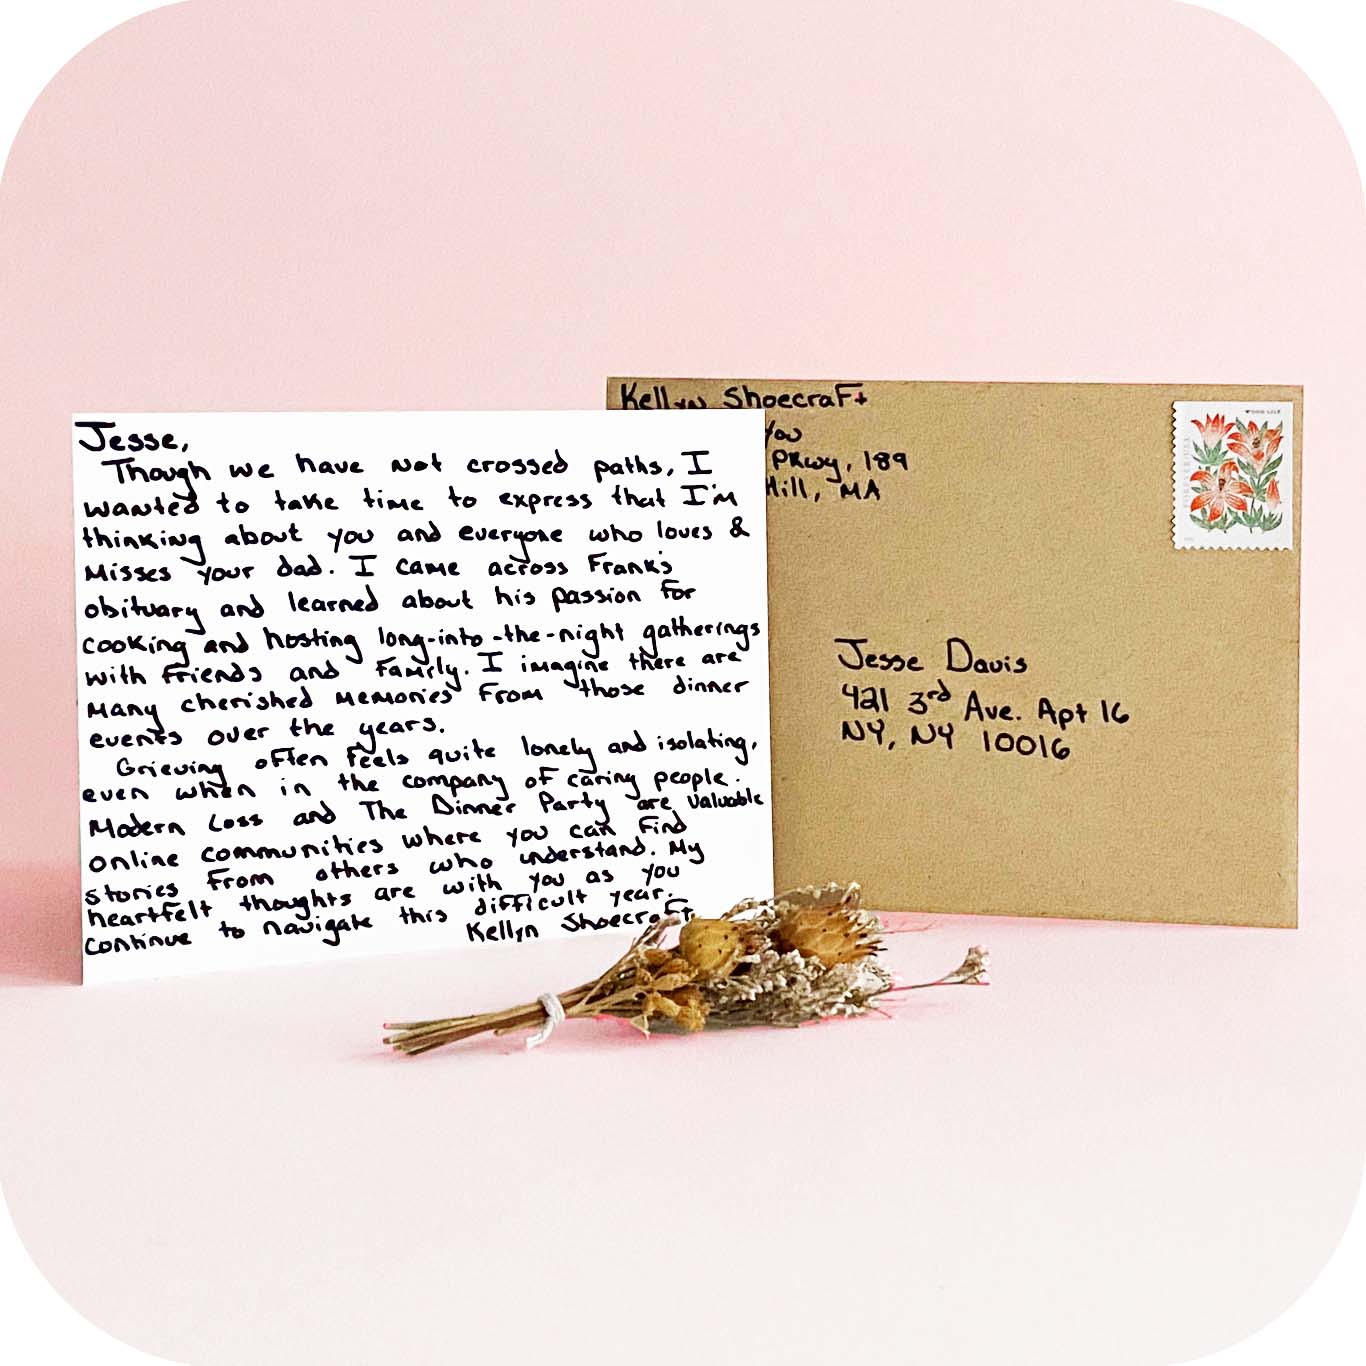 Jesse,
Though we have not crossed paths, I
wanted to take time to express that I'm
thinking about you and everyone who loves &
misses your dad. I came across Frank's
obituary and learned about his passion for
cooking and hosting long-into-the-night gatherings
with friends and family. I imagine there are
many cherished memories from those dinner
events over the years.
Grieving often feels quite lonely and isolating,
even when in the company of caring people.
Modern Loss and The Dinner Party are valuable
online communities where you can find
stories from others who understand. My
heartfelt thoughts are with you as you
continue to navigate this difficult year.
Kellyn Shoecraft
Kellyn Shoecraft
You
Pkwy, 189
Hill, MA
Jesse Davis
421 3rd Ave. Apt 16
NY, NY 10016